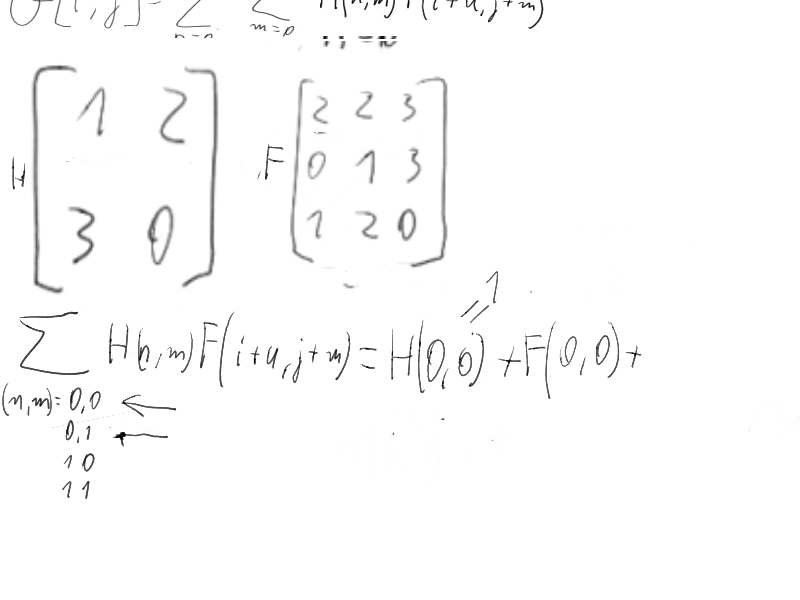 H(n,m) F(i+u,j+m)
m=0
H [ 1 2
3 0 ]
F [ 2 2 3
0 1 3
1 2 0 ]
= 1
∑ H(n,m) F(i+u,j+m) = H(0,0) + F(0,0) +
(n,m) = 0,0 ←
0,1 ←
1 0
1 1